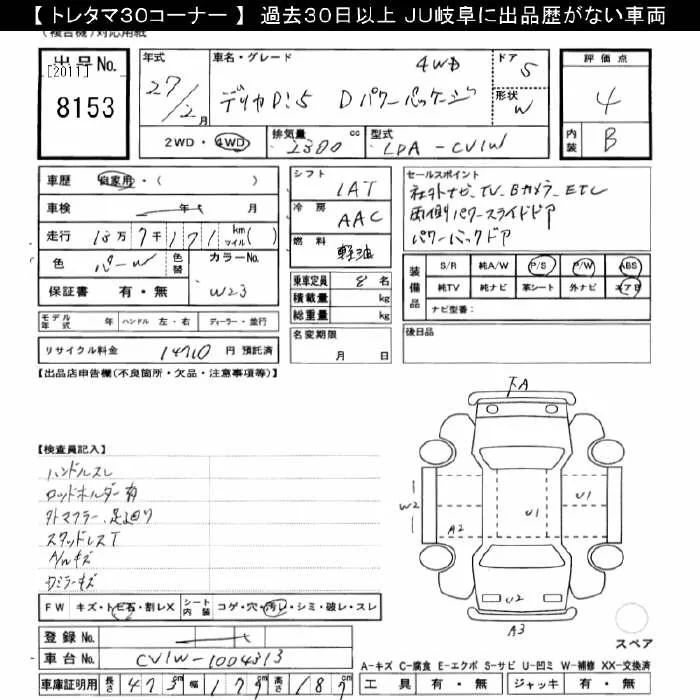 【 トレタマ30コーナー 】 過去30日以上 JU岐阜に出品歴がない車両
(複合機)対応用紙
出品No.
[2011]
8153
年式
27/2月
車名・グレード
4WD
デリカD:5 Dパワーパッケージ
ドア
5
形状
W
評価点
4
内装
B
2WD・4WD
排気量
2300 cc
型式
LDA-CV1W
車歴 自家用・( )
車検 年 月
走行 18万7千171 km マイル( )
色 パール 色替
カラーNo.
W23
保証書 有・無
シフト
1AT
冷房
AAC
燃料
軽油
乗車定員 8名
積載量 kg
総重量 kg
名変期限
月 日
セールスポイント
社外ナビ、TV、Bカメラ、ETC
両側パワースライドドア
パワーバックドア
装備品
S/R 純A/W P/S P/W ABS
純TV 純ナビ 革シート 外ナビ エアB
ナビ型番:
後日品
モデル年式 年 ハンドル 左・右 ディーラー・並行
リサイクル料金 14710 円 預託済
【出品店申告欄(不良箇所・欠品・注意事項等)】
【検査員記入】
ハンドルスレ
ロッドホルダー有
外マフラー、足廻り
スタッドレスT
A/Wキズ
Dミラーキズ
下A
W2
U1
U1
A2
U2
A3
スペア
FW キズ・トビ石・割レX シート内装 コゲ・穴・汚レ・シミ・破レ・スレ
登録No.
車台No. CV1W-1004313
車庫証明用 長さ 473cm 幅 179cm 高さ 187cm
A-キズ C-腐食 E-エクボ S-サビ U-凹ミ W-補修 XX-交換済
工具 有・無 ジャッキ 有・無